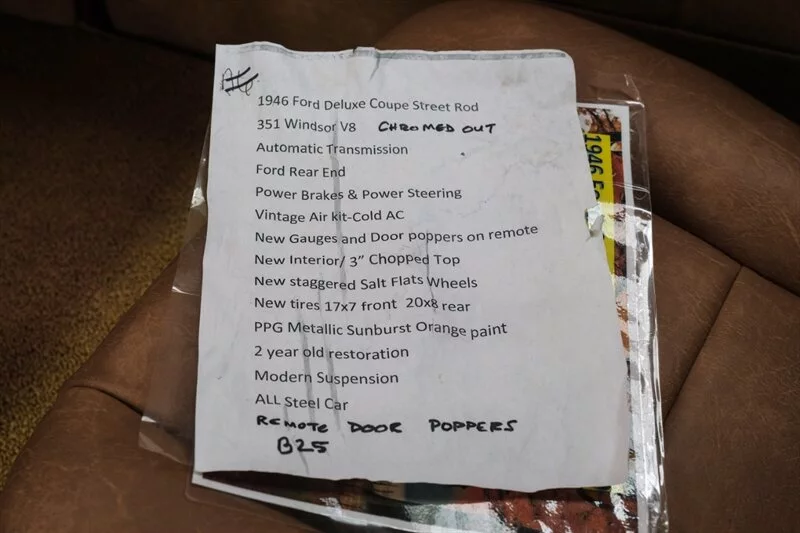 1946 Ford Deluxe Coupe Street Rod
351 Windsor V8 CHROMED OUT
Automatic Transmission
Ford Rear End
Power Brakes & Power Steering
Vintage Air kit-Cold AC
New Gauges and Door poppers on remote
New Interior/ 3” Chopped Top
New staggered Salt Flats Wheels
New tires 17x7 front 20x8 rear
PPG Metallic Sunburst Orange paint
2 year old restoration
Modern Suspension
ALL Steel Car
REMOTE DOOR POPPERS
B25
1946